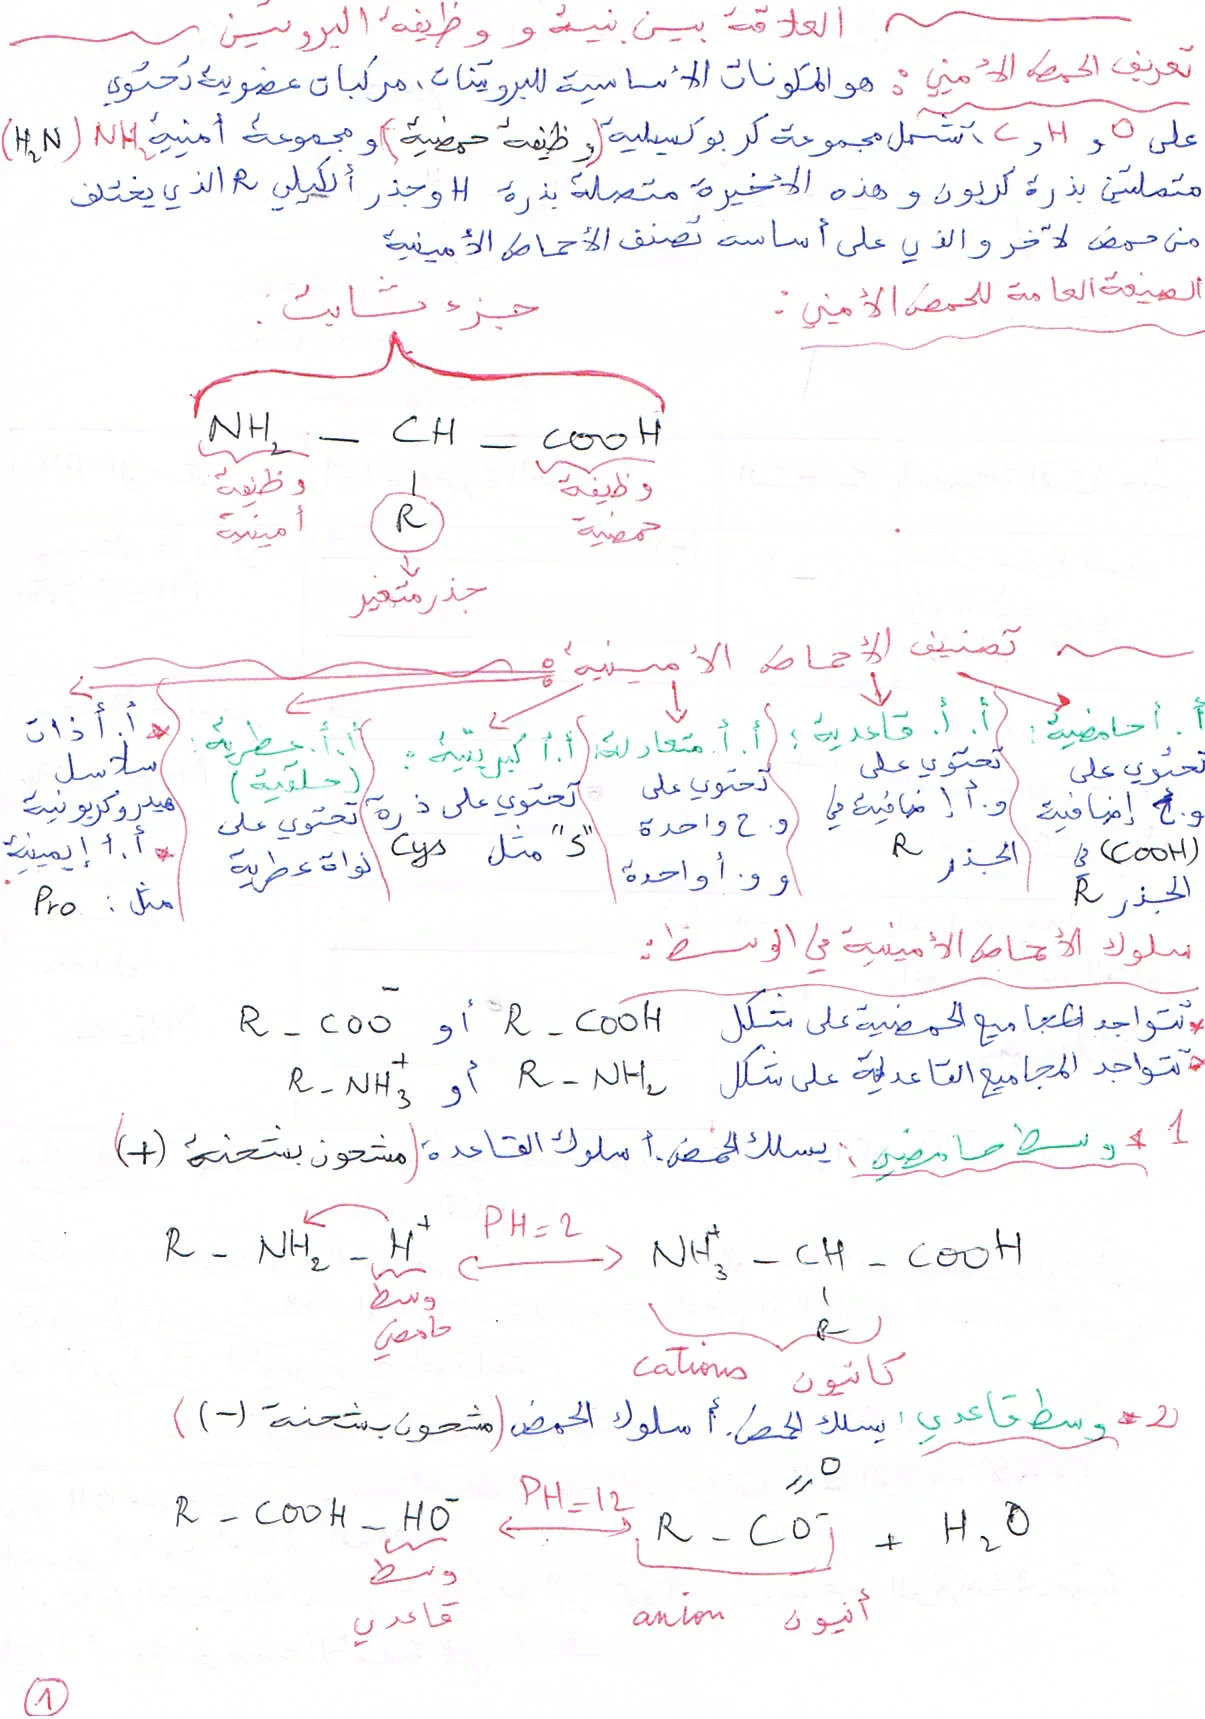 العلاقة بين بنية و وظيفة البروتين
تعريف الحمض الأميني : هو المكونات الأساسية للبروتينات، مركبات عضوية تحتوي
على O و H و C ، تشمل مجموعة كربوكسيلية (وظيفة حمضية) و مجموعة أمنية NH₂ (H₂N)
متصلتين بذرة كربون و هذه الأخيرة متصلة بذرة H و جذر ألكيلي R الذي يختلف
من حمض لآخر و الذي على أساسه تصنف الأحماض الأمينية
الصيغة العامة للحمض الأميني :
جزء ثابت :
NH₂ – CH – COOH
وظيفة أمينية
R
وظيفة حمضية
جذر متغير
تصنيف الأحماض الأمينية :
أ. أ حامضية :
تحتوي على
و.ح إضافية
(COOH) في
الجذر R
أ. أ. قاعدية :
تحتوي على
و. أ إضافية في
الجذر R
أ. أ. متعادلة :
تحتوي على
و. ح واحدة
و و. أ واحدة
أ. أ كبريتية :
تحتوي على ذرة
"S" مثل Cys
أ. أ. عطرية :
(حلقية)
تحتوي على
نواة عطرية
* أ. أ ذات
سلاسل
هيدروكربونية
* أ. أ إيمينية
مثل : Pro
سلوك الأحماض الأمينية في الوسط :
* تتواجد المجاميع الحمضية على شكل R – COOH أو R – COO⁻
* تتواجد المجاميع القاعدية على شكل R – NH₂ أو R – NH₃⁺
1 * وسط حامضي : يسلك الحمض. أ سلوك القاعدة (مشحون بشحنة (+)
R – NH₂ – H⁺ PH=2 NH₃⁺ – CH – COOH
وسط حامضي
R
cations كاتيون
2 * وسط قاعدي : يسلك الحمض. أ سلوك الحمض (مشحون بشحنة (–) )
R – COOH – HO⁻ PH=12 R – CO⁻ + H₂O
O
وسط قاعدي
anion أنيون
1